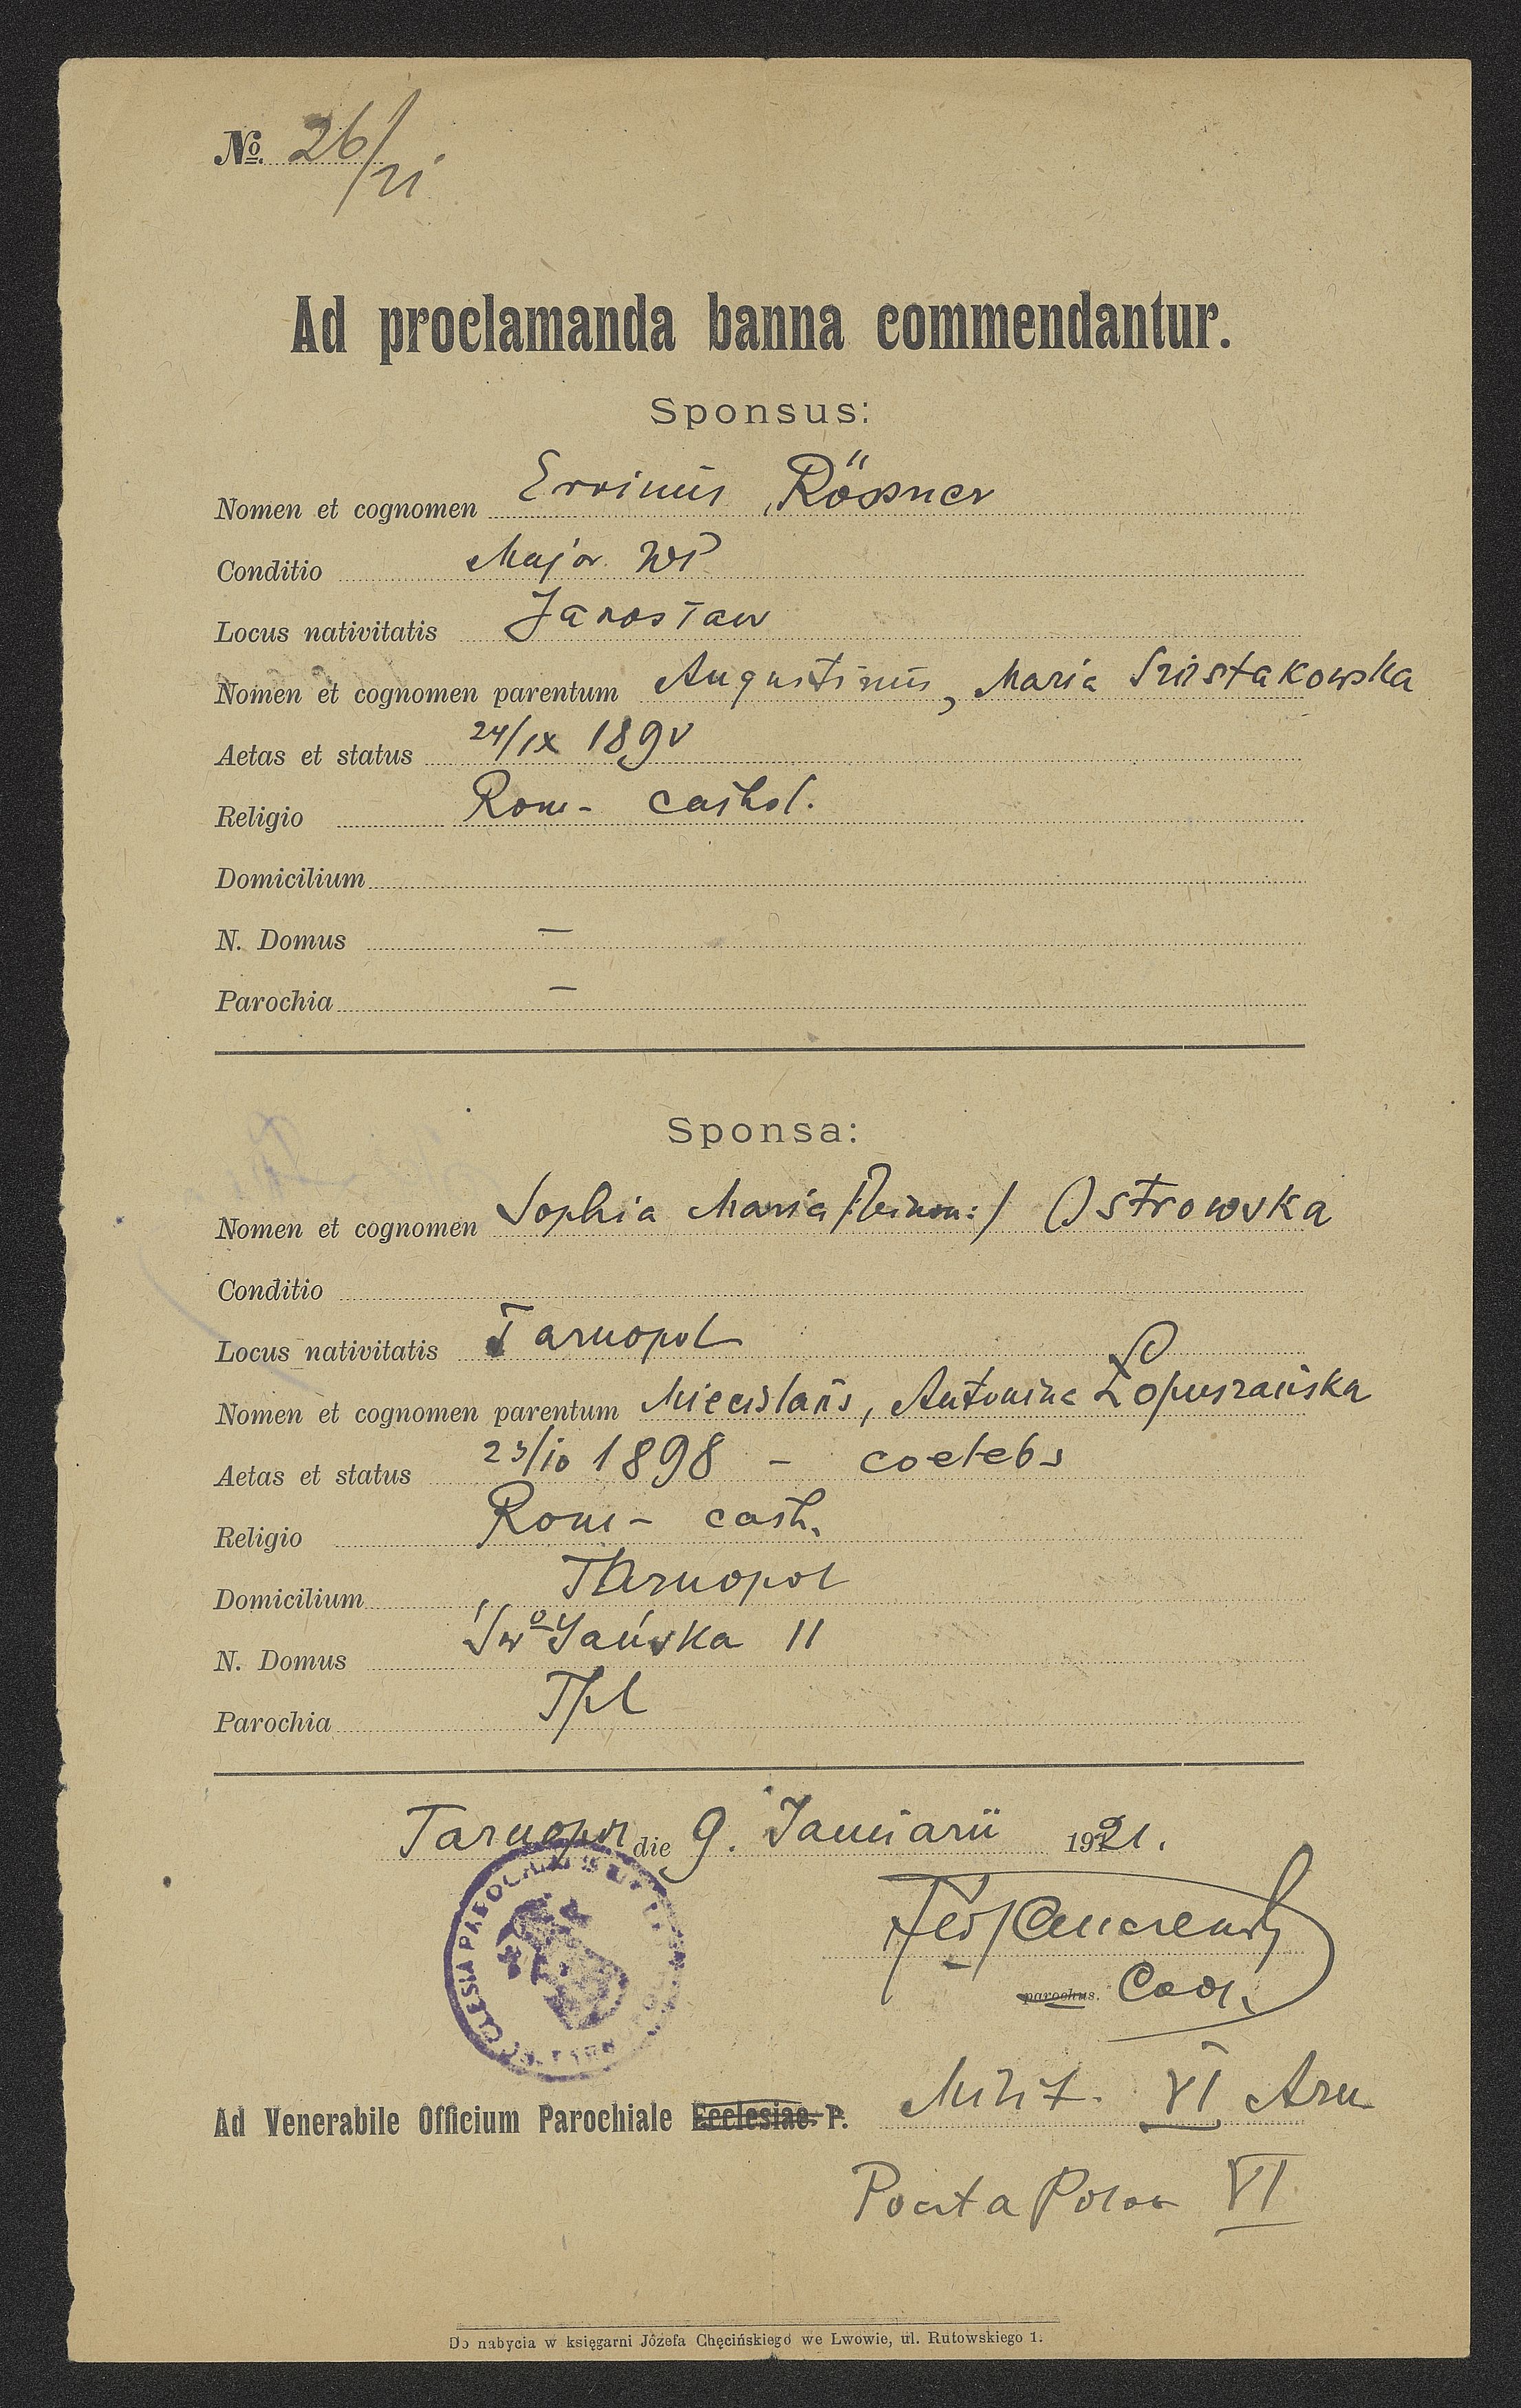 №. 26/21
Ad proclamanda banna commendantur.
Sponsus:
Nomen et cognomen Ervinus Rössner
Conditio Major WP
Locus nativitatis Jarosław
Nomen et cognomen parentum Augustinus, Maria
Aetas et status 24/IX 189v
Religio Rom- cathol.
Domicilium
N. Domus —
Parochia —
Sponsa:
Nomen et cognomen Sophia Maria /:binom:/ Ostrowska
Conditio
Locus nativitatis Tarnopol
Nomen et cognomen parentum Miecislaus, Antonina Łopuszańska
Aetas et status 23/10 1898 - coelebs
Religio Rom- cath.
Domicilium Tarnopol
N. Domus Św° Jańska 11
Parochia Tpl
Tarnopol die 9. Januarii 1921.
parochus. Coop.
ECCLESIA PAROCHIALIS
Ad Venerabile Officium Parochiale Ecclesiae P. Milit. VI Arm
Poczta Polow VI
Do nabycia w księgarni Józefa Chęcińskiego we Lwowie, ul. Rutowskiego 1.